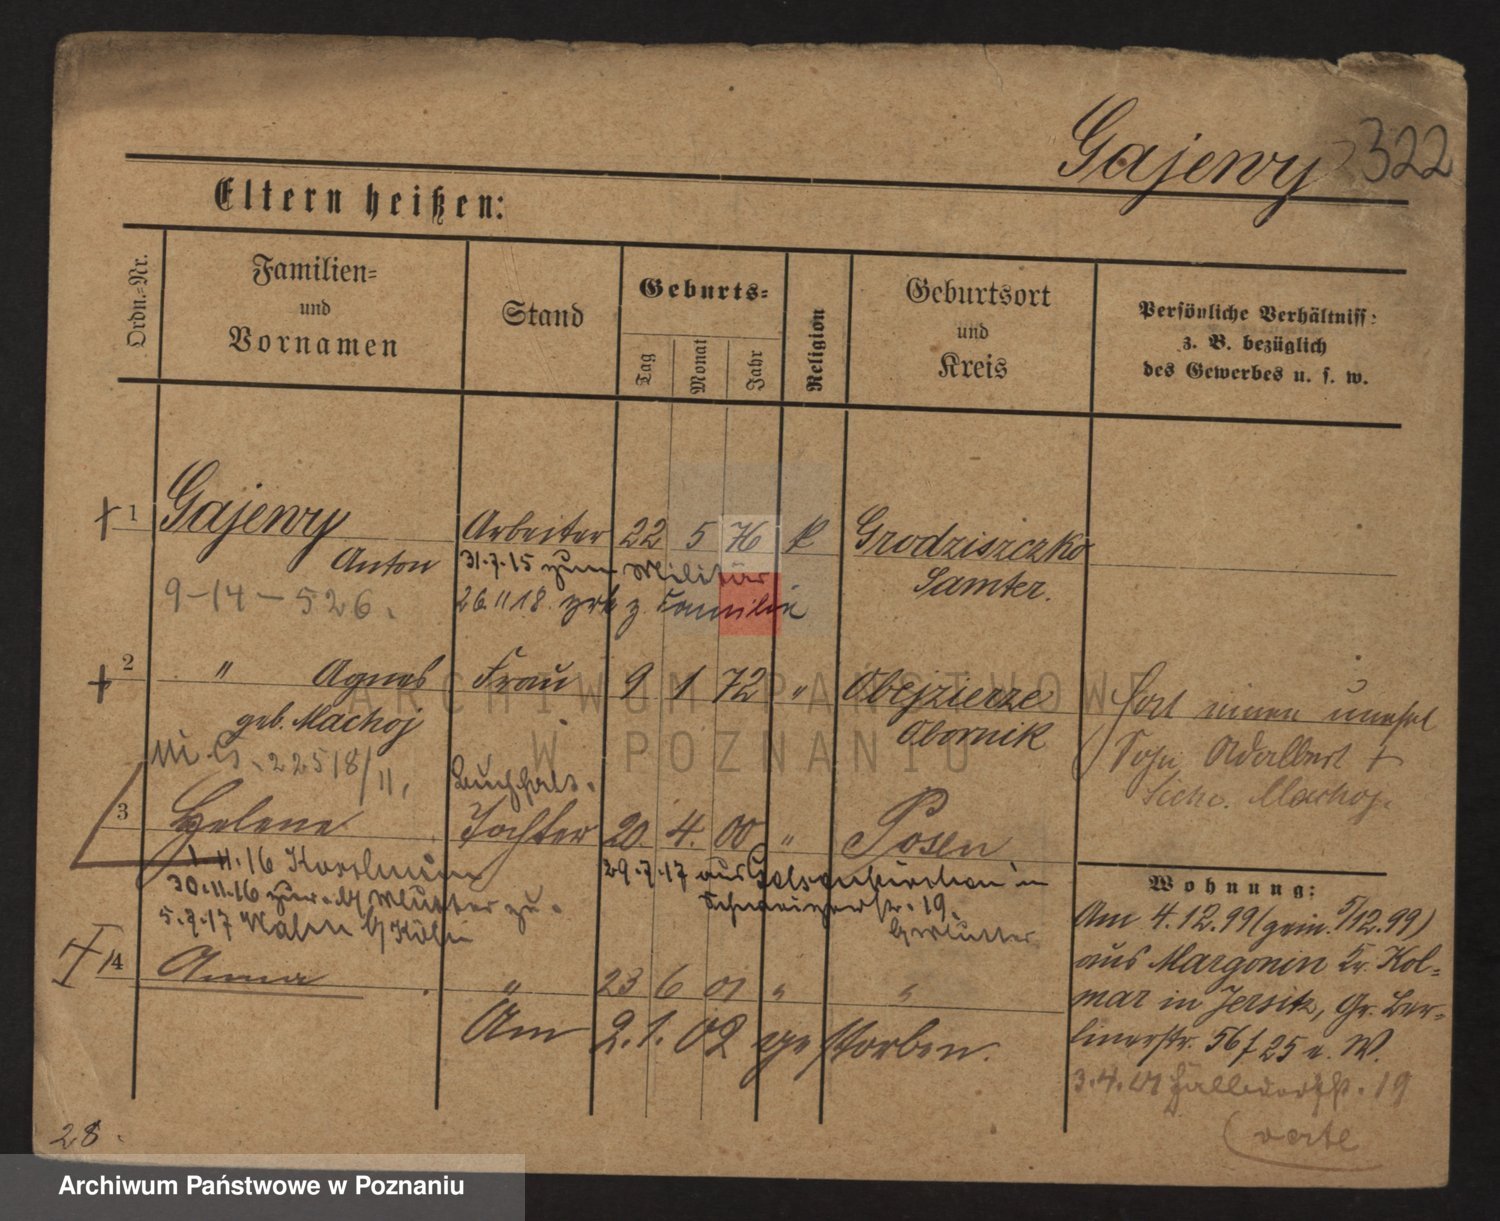 Gajewy 322
Eltern heißen:
Ordn.-Nr.
Familien=
und
Vornamen
Stand
Geburts=
Tag
Monat
Jahr
Religion
Geburtsort
und
Kreis
Persönliche Verhältniss:
z. B. bezüglich
des Gewerbes u. s. w.
1 Gajewy Arbeiter 22 5 76 k Grodziszczko
Anton 31.7.15 zum Militär Samter.
9-14-526. 26.11.18. z. Familie
2 " Agnes Frau 9 1 72 " Obejzierze
geb. Machoj Obornik
hat einen unehel
Sohn Adalbert +
Machoj.
22518/11.
Buchhalt.
3 Helene Tochter 20. 4. 00 " Posen
1.11.16
30.11.16 zur Mutter
5.7.17 Köln
29.7.17 aus Gelsenkirchen in
str. 19.
Mutter
4 Anna " 23 6 01 " "
Am 2.1.02 gestorben.
Wohnung:
Am 4.12.99 (gem. 5/12.99)
aus Margonin Kr. Kol=
mar in Jersitz, Gr. Ber=
linerstr. 56 f 25 a. W.
3.4. 19
(verte
28.
ARCHIWUM PAŃSTWOWE
W POZNANIU
Archiwum Państwowe w Poznaniu